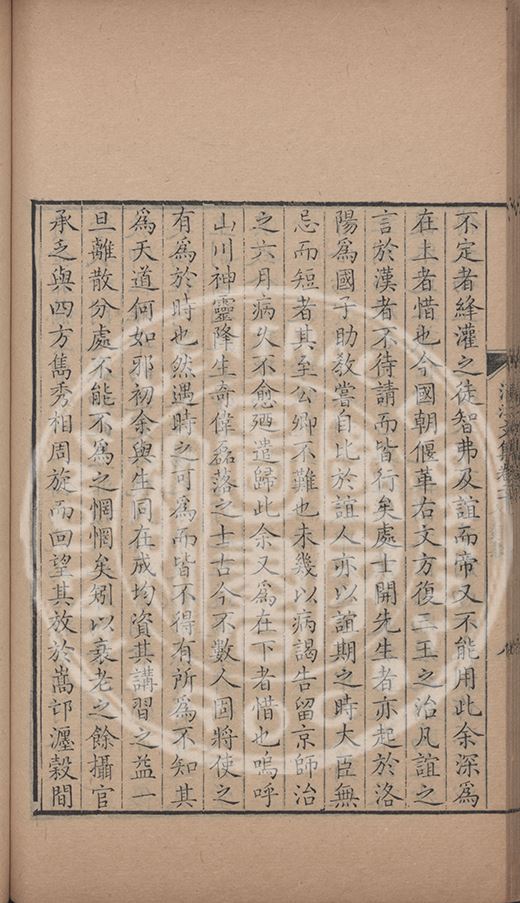 不定者絳灌之徒智弗及誼而帝又不能用此余深為
在上者惜也今國朝偃革右文方復三王之治凡誼之
言於漢者不待請而皆行矣處士開先生者亦起於洛
陽為國子助教嘗自比於誼人亦以誼期之時大臣無
忌而短者其至公卿不難也未幾以病謁告留京師治
之六月病久不愈廼遣歸此余又為在下者惜也嗚呼
山川神靈降生奇偉磊落之士古今不數人固將使之
有為於時也然遇時之可為而皆不得有所為不知其
為天道何如邪初余與生同在成均資其講習之益一
旦離散分處不能不為之惘惘矣矧以衰老之餘攝官
承乏與四方雋秀相周旋而回望其放於嵩邙瀍穀間